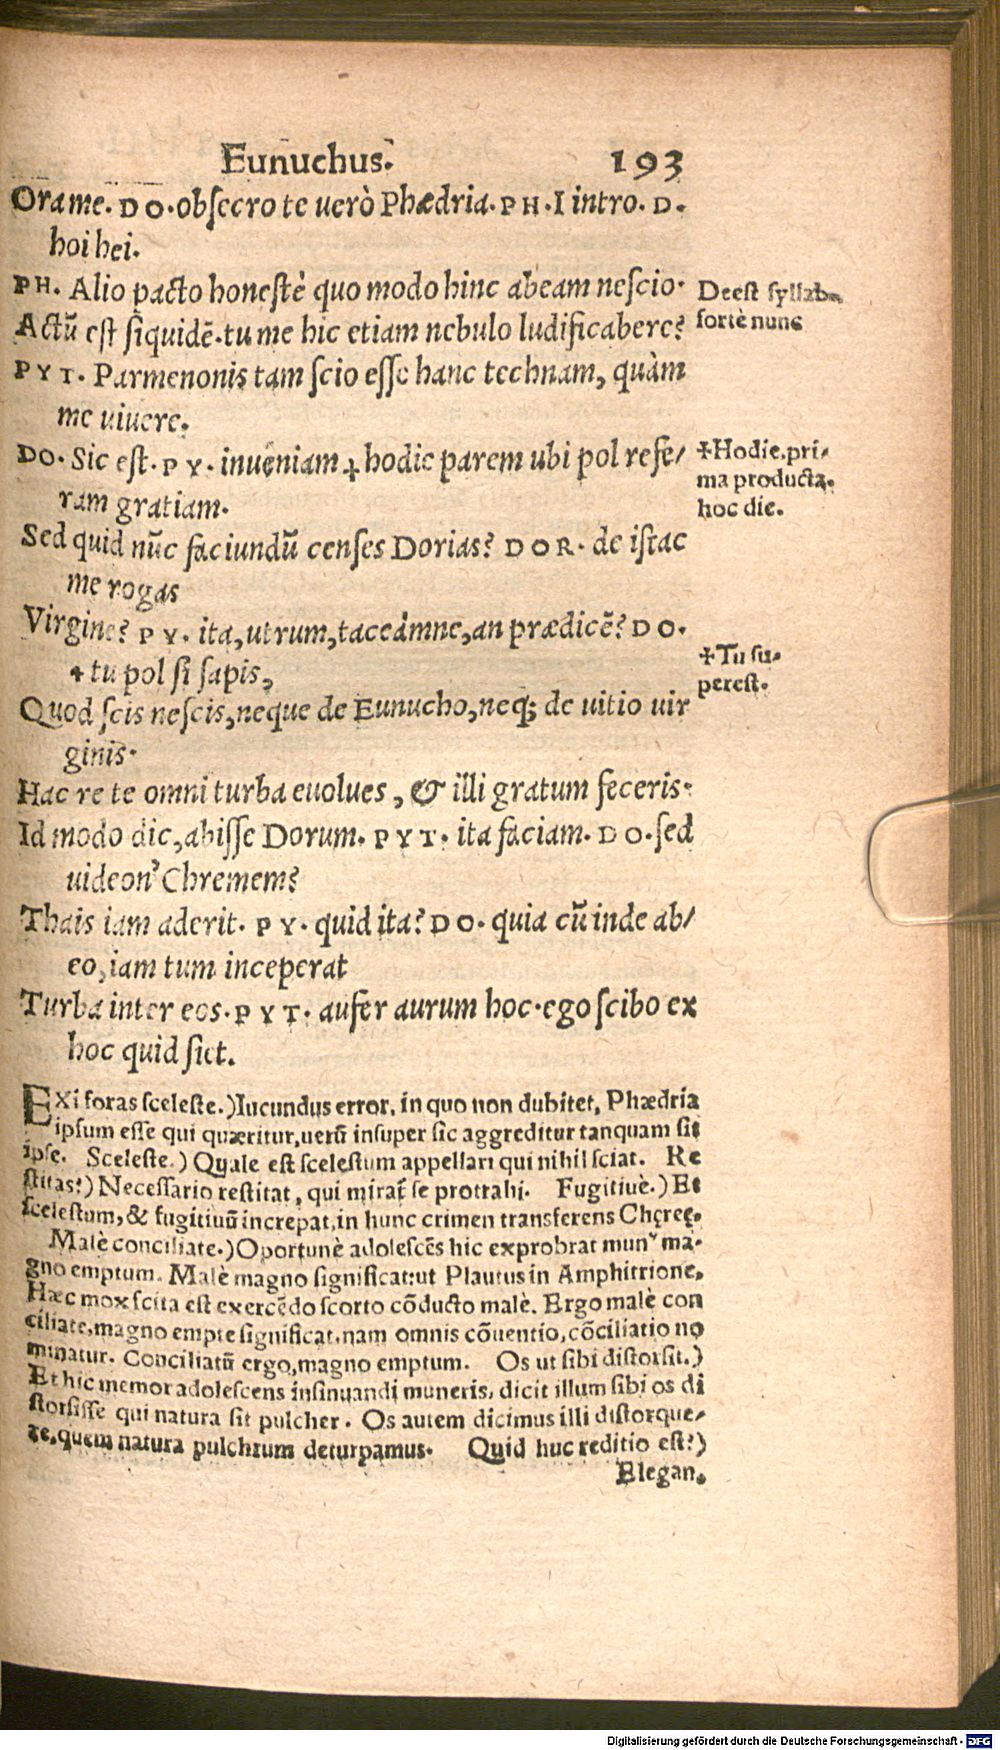 Eunuchus. 193
Ora me. DO. obsecro te uerò Phædria. PH. I intro. D.
hoi hei.
PH. Alio pacto honestè quo modo hinc abeam nescio.
Deest syllab.
Actũ est siquidẽ. tu me hic etiam nebulo ludificabere?
fortè nunc
PYT. Parmenonis tam scio esse hanc technam, quàm
me uiuere.
DO. Sic est. PY. inueniam ✝ hodie parem ubi pol refe/
✝Hodie.pri/
ma producta.
ram gratiam.
hoc die.
Sed quid nũc faciundũ censes Dorias? DOR. de istac
me rogas
Virgine? PY. ita, utrum, taceámne, an prædicẽ? DO.
✝Tu su/
✝ tu pol si sapis,
perest.
Quod scis nescis, neque de Eunucho, neq; de uitio uir
ginis.
Hac re te omni turba euolues, & illi gratum feceris.
Id modo dic, abisse Dorum. PYT. ita faciam. DO. sed
uideon' Chremem?
Thais iam aderit. PY. quid ita? DO. quia cũ inde ab/
eo, iam tum inceperat
Turba inter eos. PYT. aufer aurum hoc. ego scibo ex
hoc quid siet.
EXi foras sceleste.) Iucundus error, in quo non dubitet, Phædria
ipsum esse qui quæritur, uerũ insuper sic aggreditur tanquam sit
ipse. Sceleste.) Quale est scelestum appellari qui nihil sciat. Re
stitas?) Necessario restitat, qui mirat̃ se protrahi. Fugitiuè.) Et
scelestum, & fugitiuũ increpat, in hunc crimen transferens Chęreę.
Malè conciliate.) Oportunè adolescẽs hic exprobrat mun' ma.
gno emptum. Malè magno significat: ut Plautus in Amphitrione,
Hæc mox scita est exercẽdo scorto cõducto malè. Ergo malè con
ciliate, magno empte significat. nam omnis cõuentio, cõciliatio no
minatur. Conciliatũ ergo, magno emptum. Os ut sibi distorsit.)
Et hic memor adolescens insinuandi muneris, dicit illum sibi os di
storsisse qui natura sit pulcher. Os autem dicimus illi distorque/
re, quem natura pulchrum deturpamus. Quid huc reditio est?)
Elegan.
Digitalisierung gefördert durch die Deutsche Forschungsgemeinschaft - DFG